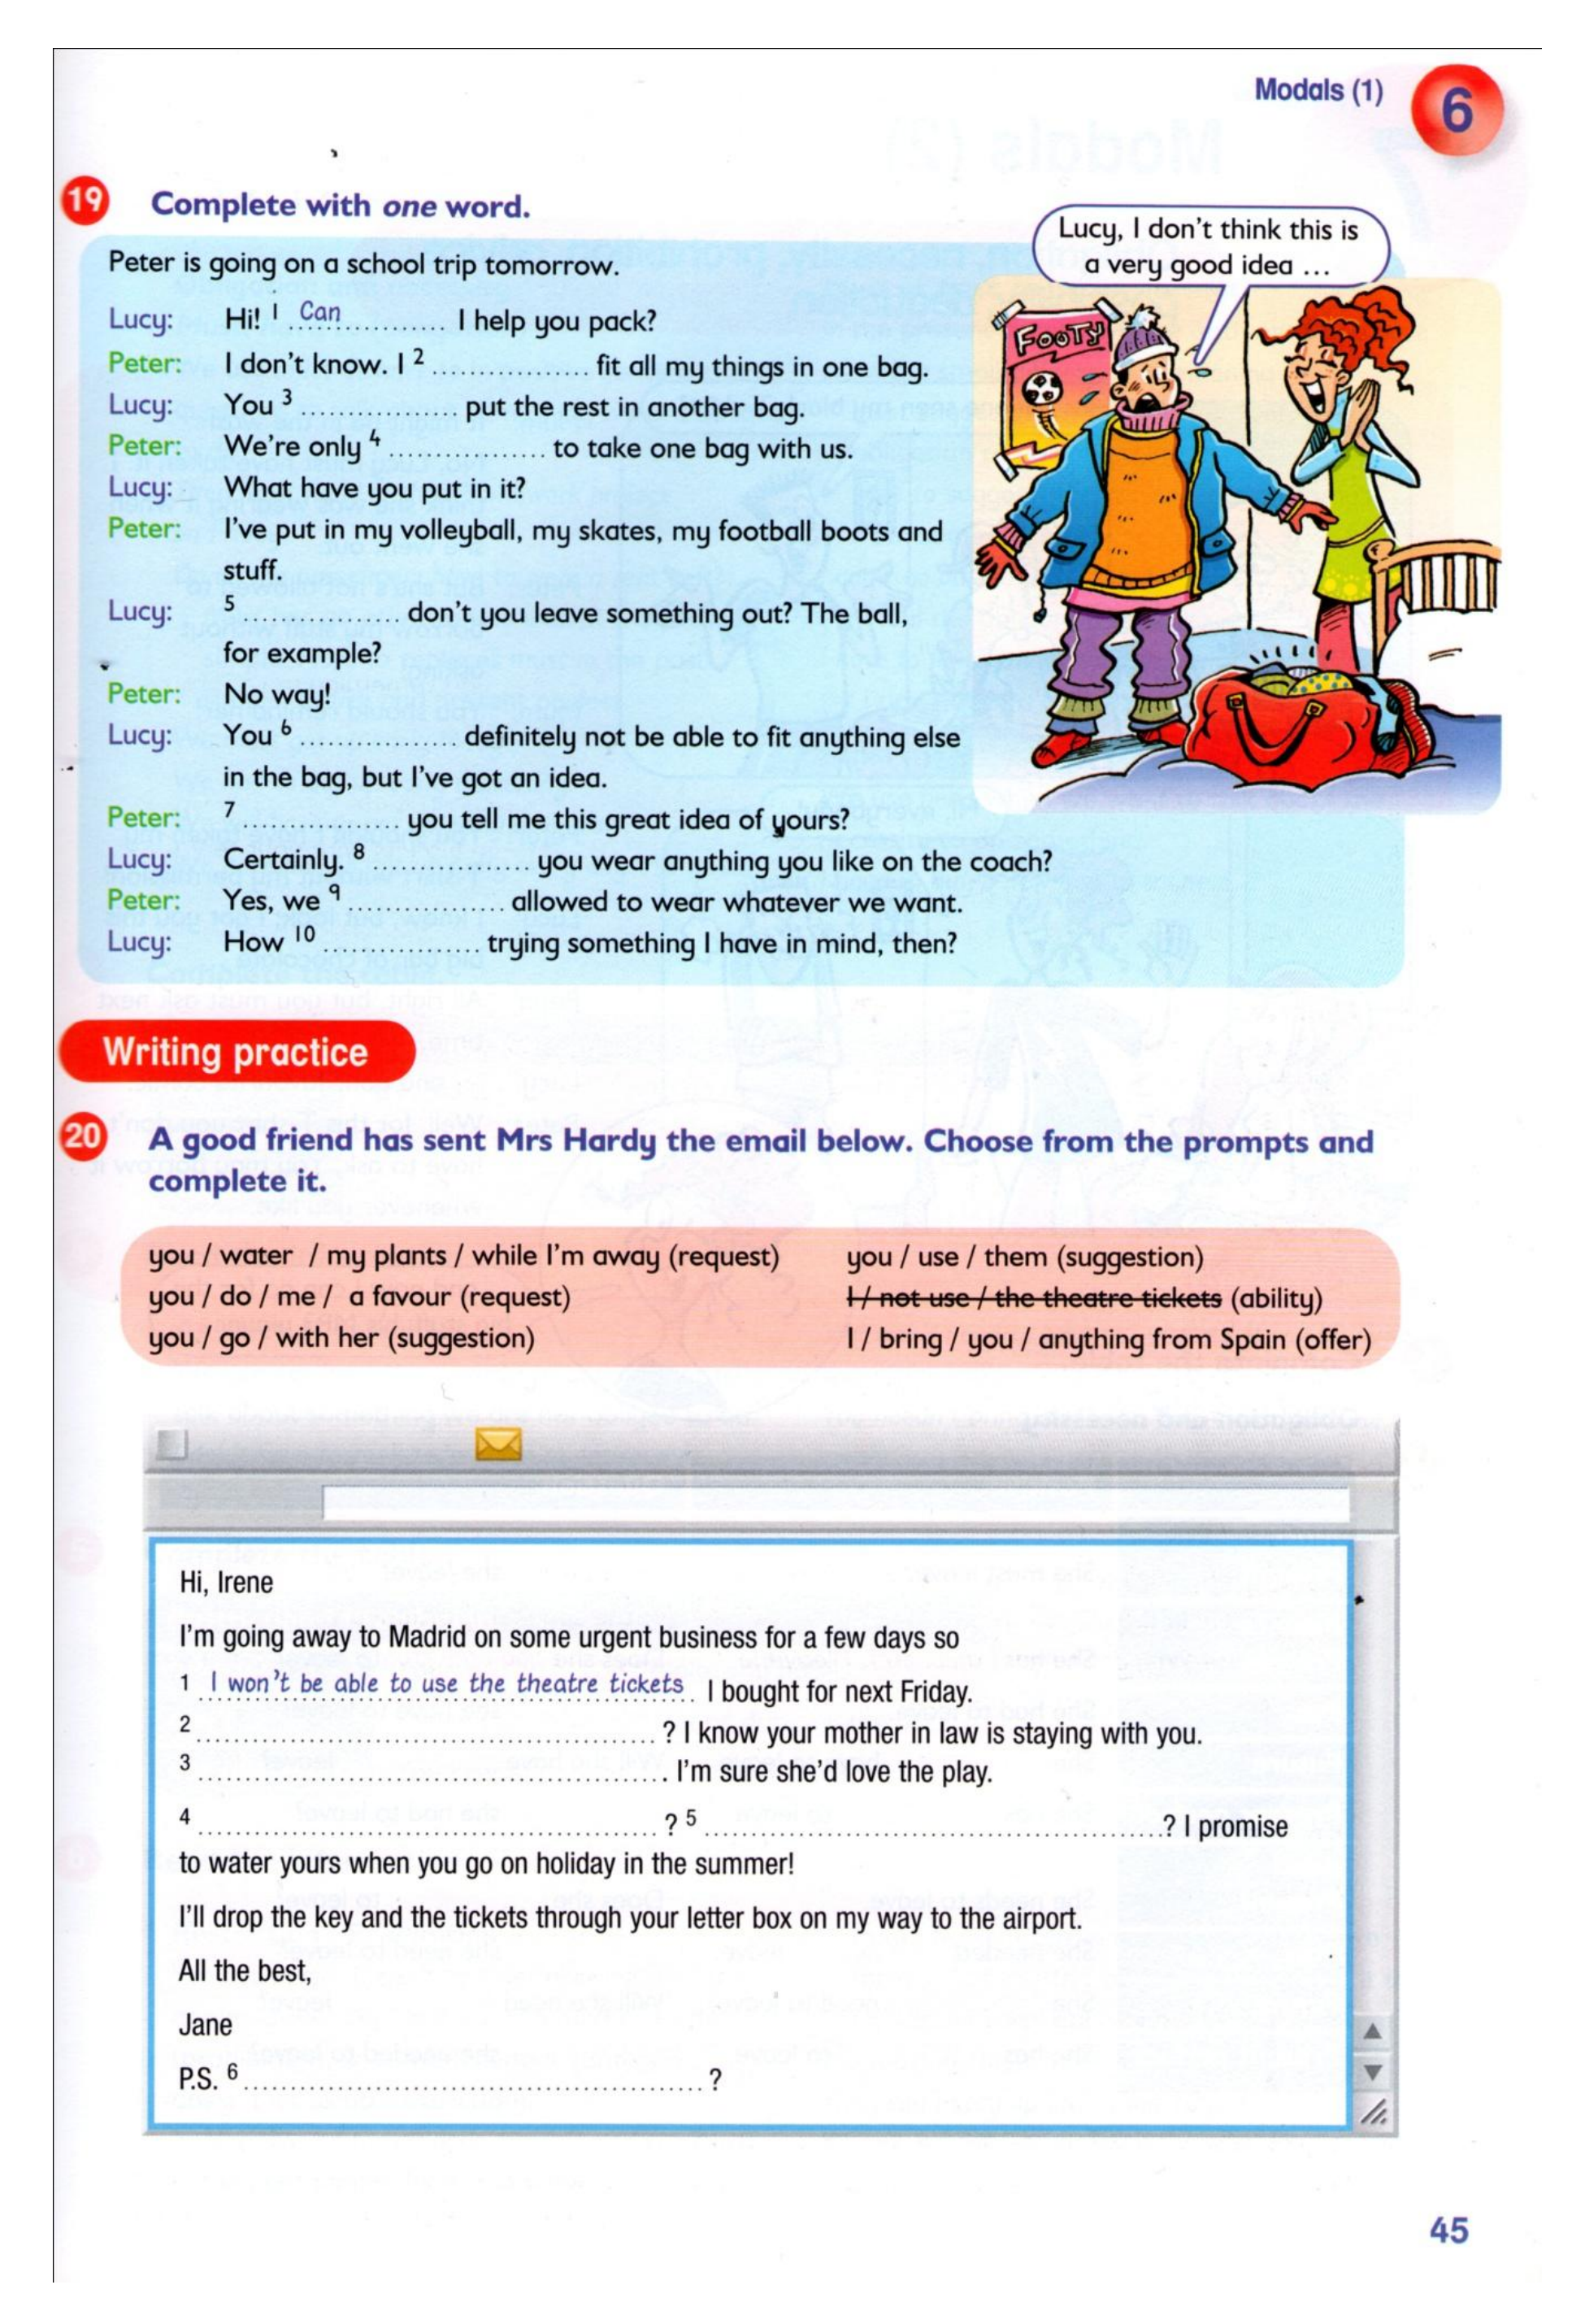 Modals (1)
6
19 Complete with one word.
Lucy, I don't think this is
a very good idea ...
FOOTY
Peter is going on a school trip tomorrow.
Lucy: Hi! 1 Can I help you pack?
Peter: I don't know. I 2 ................ fit all my things in one bag.
Lucy: You 3 ................ put the rest in another bag.
Peter: We're only 4 ................ to take one bag with us.
Lucy: What have you put in it?
Peter: I've put in my volleyball, my skates, my football boots and
stuff.
Lucy: 5 ................ don't you leave something out? The ball,
for example?
Peter: No way!
Lucy: You 6 ................ definitely not be able to fit anything else
in the bag, but I've got an idea.
Peter: 7 ................ you tell me this great idea of yours?
Lucy: Certainly. 8 ................ you wear anything you like on the coach?
Peter: Yes, we 9 ................ allowed to wear whatever we want.
Lucy: How 10 ................ trying something I have in mind, then?
Writing practice
20 A good friend has sent Mrs Hardy the email below. Choose from the prompts and
complete it.
you / water / my plants / while I'm away (request)
you / do / me / a favour (request)
you / go / with her (suggestion)
you / use / them (suggestion)
I / not use / the theatre tickets (ability)
I / bring / you / anything from Spain (offer)
Hi, Irene
I'm going away to Madrid on some urgent business for a few days so
1 I won't be able to use the theatre tickets I bought for next Friday.
2 ................ ? I know your mother in law is staying with you.
3 ................ . I'm sure she'd love the play.
4 ................ ? 5 ................ ? I promise
to water yours when you go on holiday in the summer!
I'll drop the key and the tickets through your letter box on my way to the airport.
All the best,
Jane
P.S. 6 ................ ?
45